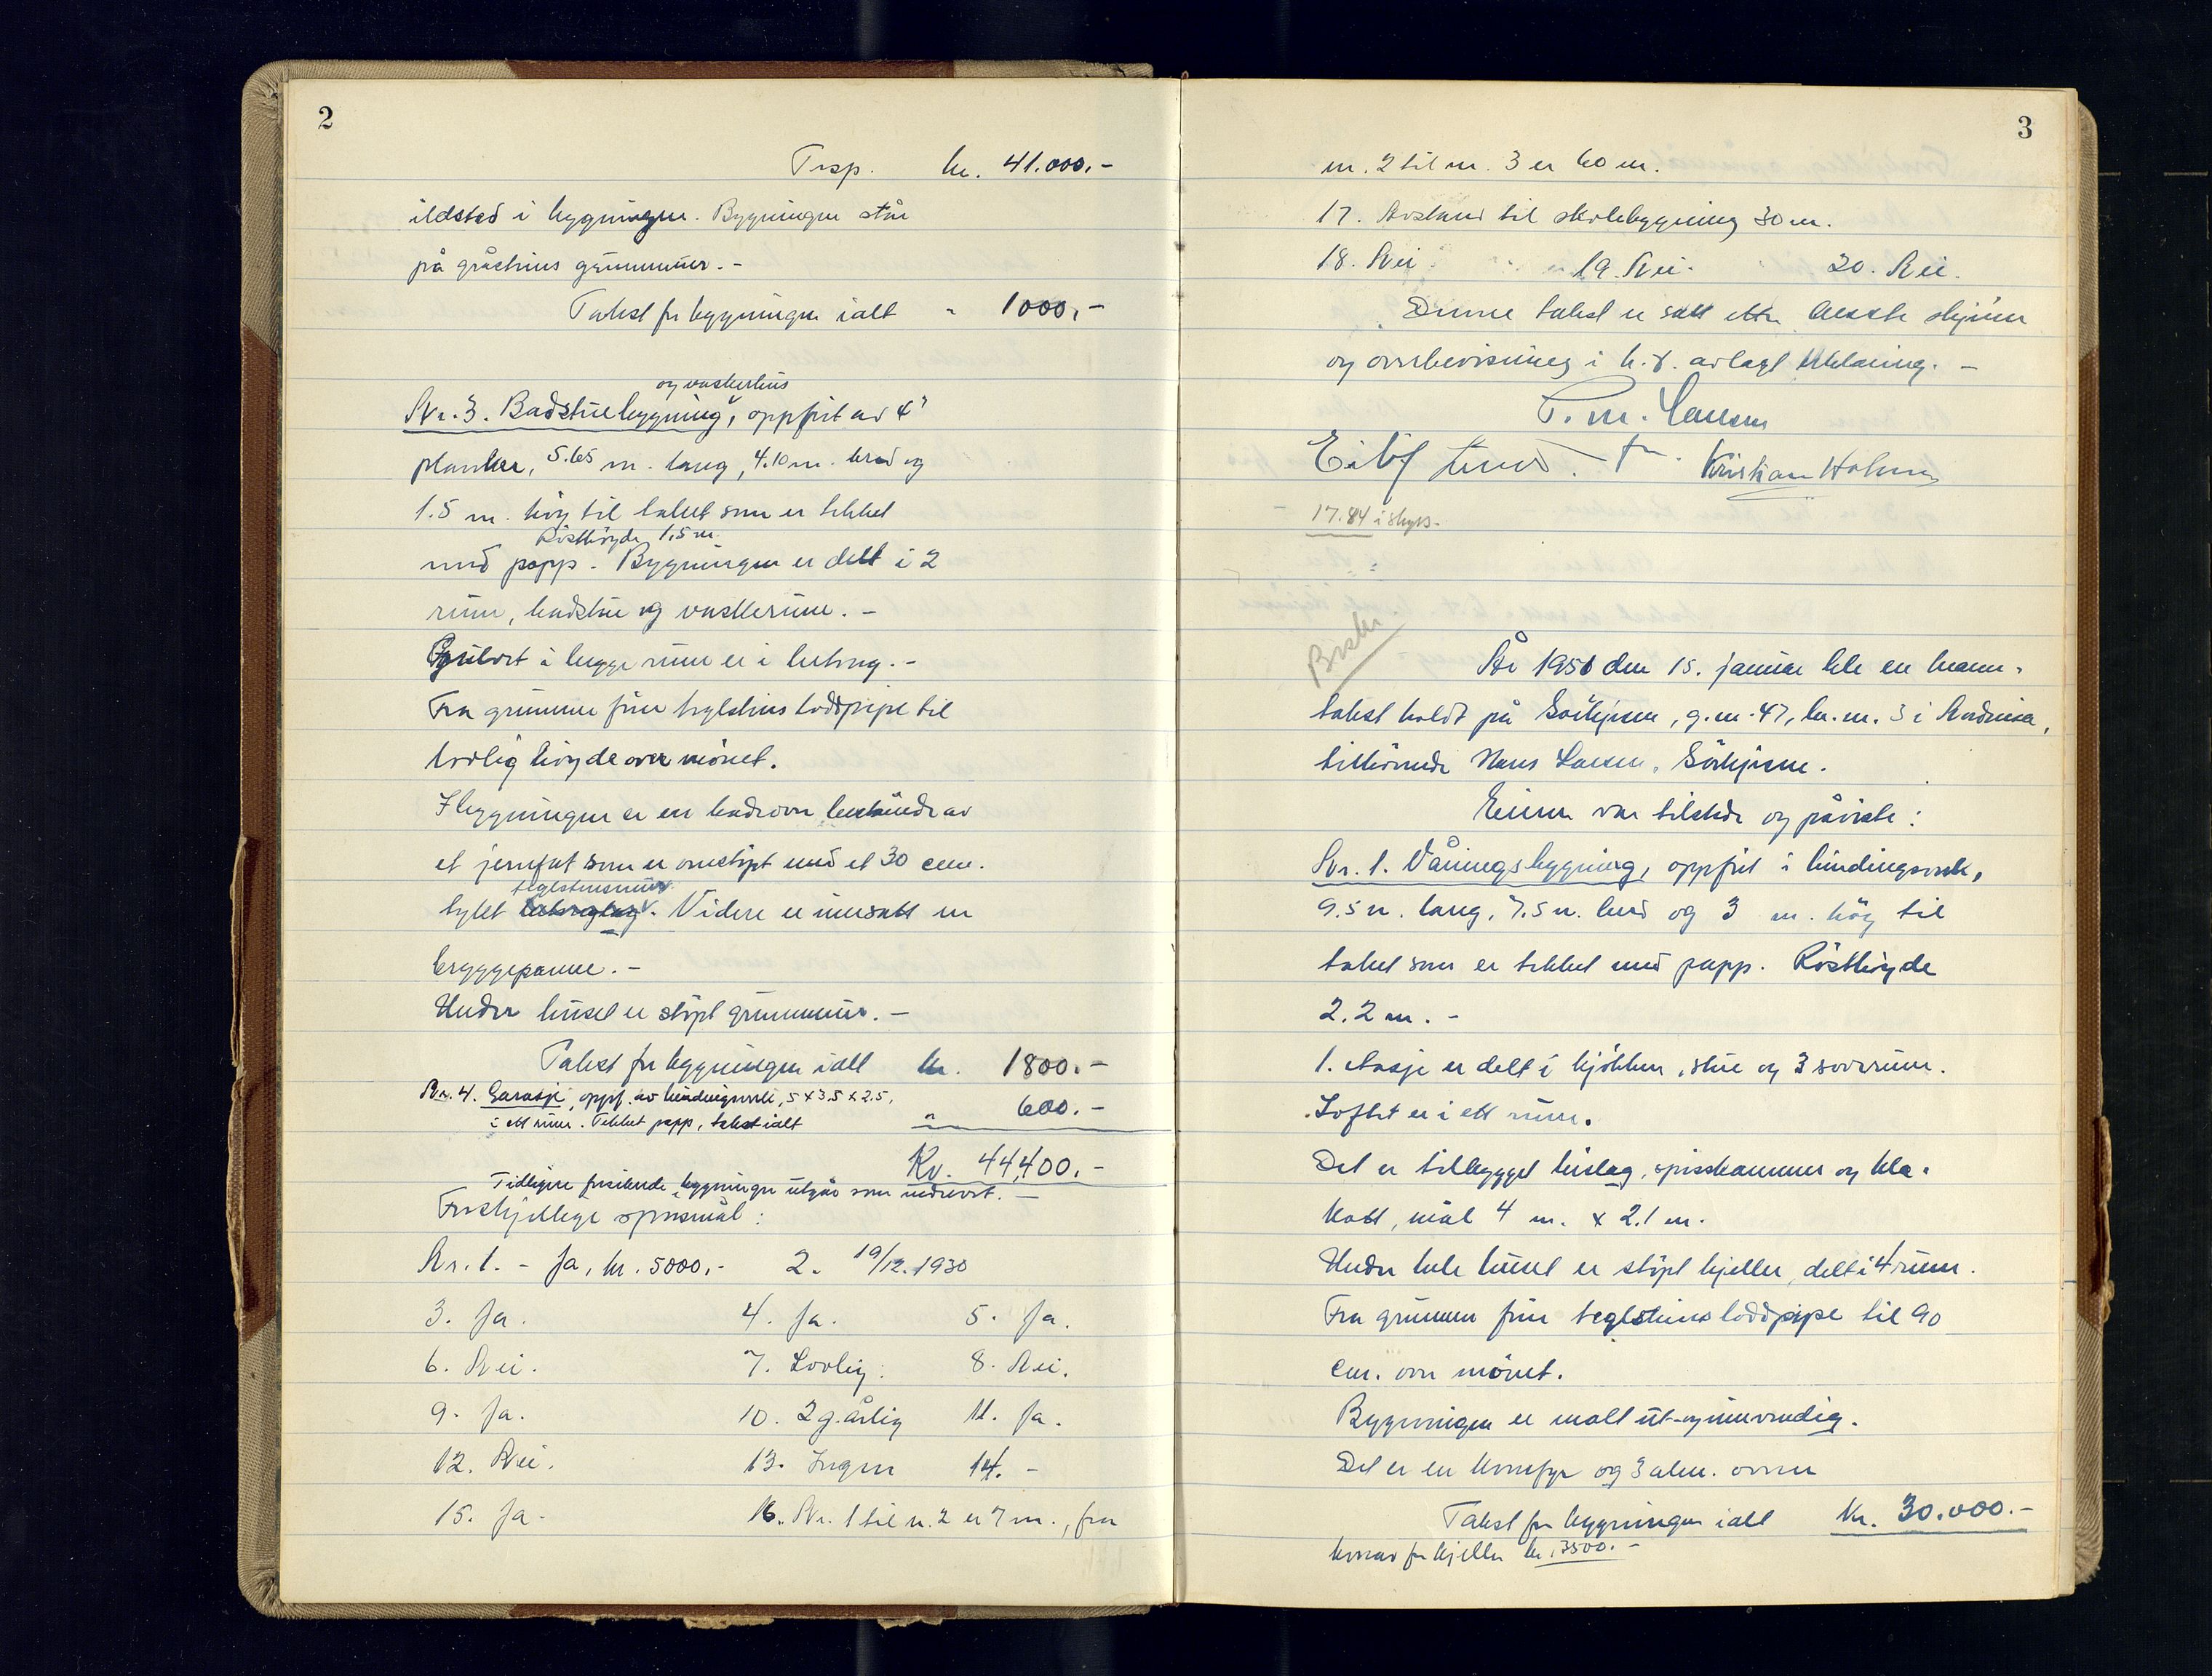 2
Trsp. kr. 41.000.-
ildsted i bygningen. Bygningen står
på gråsteins grunnmur.-
Takst for bygningen ialt " 1000,-
og vaskerhus
Nr. 3. Badstuebygning, oppført av 4"
planker, 5.65 m. lang, 4.10 m. bred og
1.5 m. høy til taket som er tekket
Rösthöyde 1,5 m.
med papp. Bygningen er delt i 2
rum, badstue og vaskerum.-
i begge rum er i betong.-
Fra grunnen förer teglsteins loddpipe til
lovlig höyde over mönet.
I bygningen er en badeovn bestående av
et jernfat som er omstöpt med et 30 cm.
teglstensmur
tykt. Videre er innsatt en
bryggepanne.-
Under huset er stöpt grunnmur.-
Takst for bygningen ialt kr. 1800.-
Nr. 4. Garasje, oppf. av bindingsverk, 5 x 3.5 x 2.5,
i ett rum. Tekket papp, takst ialt " 600.-
Kr. 44,400.-
Tidligere forsikrede bygninger utgår som nedrevet.-
Forskjellige spørsmål:
Nr. 1. - Ja, kr. 5000,- 2. 19/12. 1930
3. Ja. 4. Ja. 5. Ja.
6. Nei. 7. Lovlig. 8. Nei.
9. Ja. 10. 2 g. årlig 11. Ja.
12. Nei. 13. Ingen 14. -
15. Ja. 16. Nr. 1 til nr. 2 er 7 m., fra
3
nr. 2 til nr. 3 er 60 m.
17. Avstand til skolebygning 30 m.
18. Nei. 19. Nei. 20. Nei.
Denne takst er satt etter beste skjönn
og overbevisning i h.t. avlagt erklæring.-
P. M. Larsen
Eilif Lund. Kristian Holmen
17.84 i skyss.
År 1950 den 15. januar ble en brann-
takst holdt på g.nr. 47, br.nr. 3 i Nordreisa,
tilhörende Hans Larsen,
Eieren var tilstede og påviste:
Nr. 1. Våningsbygning, oppført i bindingsverk,
9.5 m. lang, 7.5 m. bred og 3 m. höy til
taket som er tekket med papp. Rösthöyde
2.2 m.-
1. etasje er delt i kjökken, stue og 3 soverum.
Loftet er i ett rum.
Det er tilbygget bislag, spisskammer og kla-
kott, mål 4 m. x 2.1 m.
Under hele huset er stöpt kjeller, delt i 4 rum.
Fra grunnen förer teglsteins loddpipe til 90
cm. over mönet.
Bygningen er malt ut- og innvendig.
Det er en komfyr og 3 alm. ovner
Takst for bygningen ialt kr. 30.000.-
hvorav for kjeller kr. 3500.-